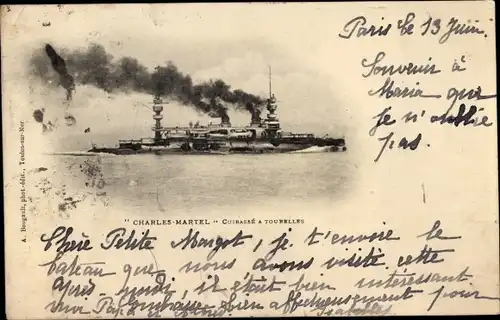 Paris le 13 Juin
Souvenir à
Maria que
je n'oublie
pas.
A. Bougault, phot.-édit., Toulon-sur-Mer
" CHARLES-MARTEL " CUIRASSÉ A TOURELLES
Chère Petite Margot, je t'envoie le
bateau que nous avons visité cette
après-lundi, il était bien intéressant
Papa embrasse bien affectueusement pour
Isabelle